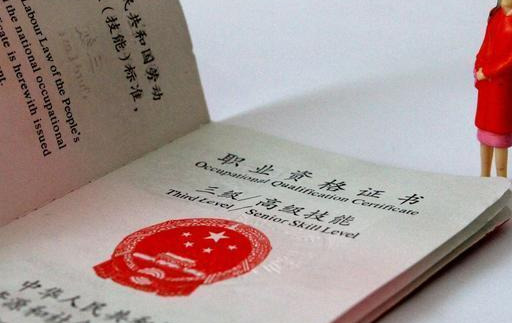 民共和国劳动
（技能）标准，
Labour Law of the People's
the national occupational
icate is herewith issued
职业资格证书
Occupational Qualification Certificate
三级／高级技能
Third Level / Senior Skill Level
中华人民共和
资源和社会